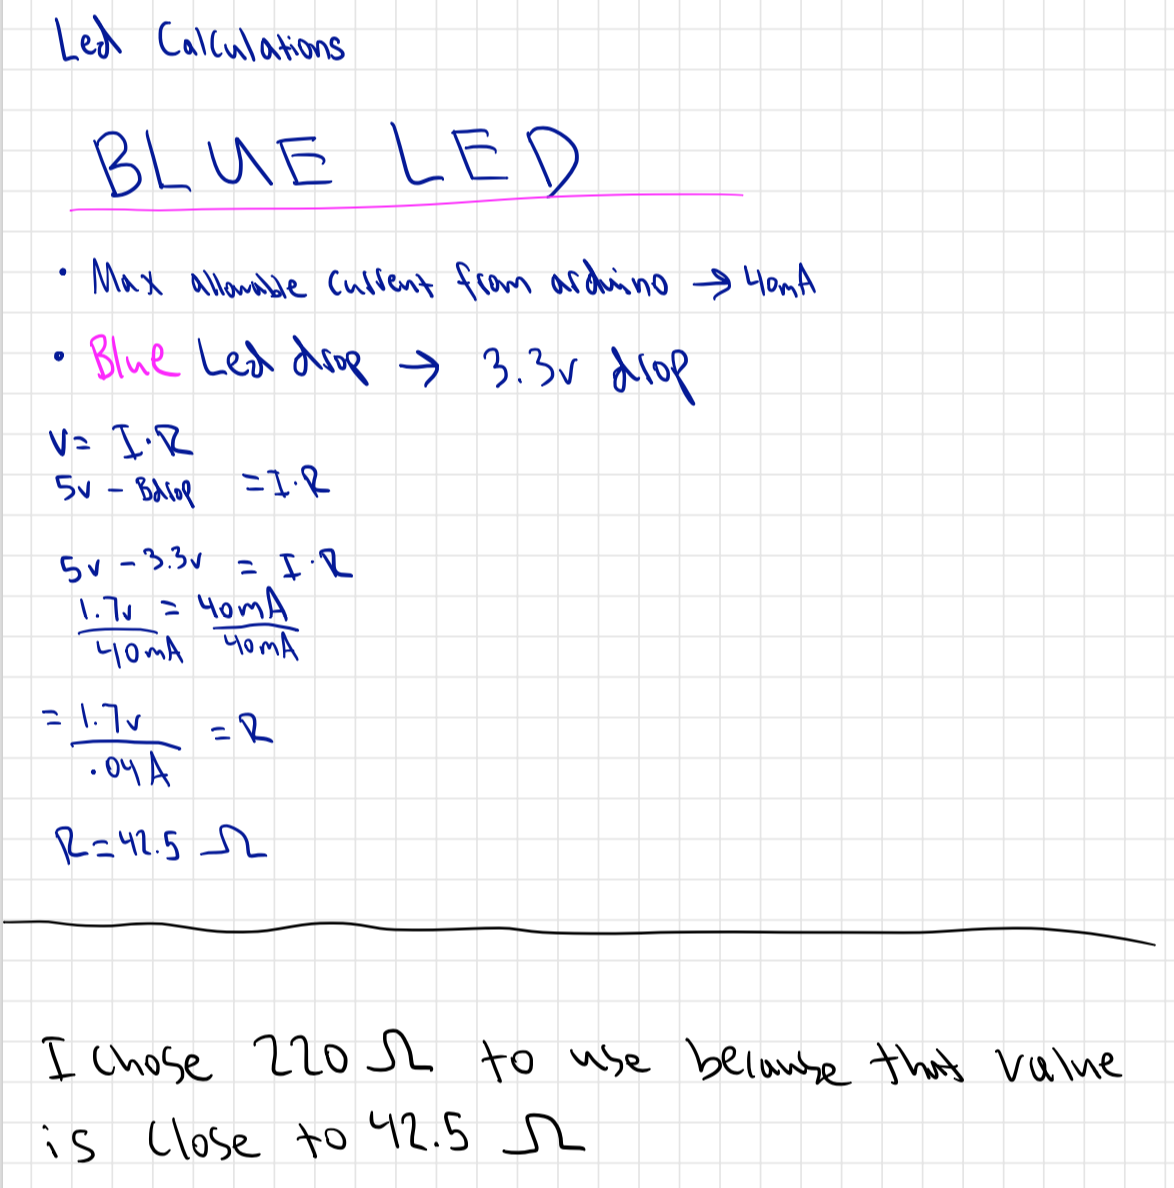 Led Calculations
BLUE LED
• Max allowable current from arduino → 40mA
• Blue Led drop → 3.3v drop
V = I·R
5v - Bdrop = I·R
5v - 3.3v = I·R
1.7v = 40mA
40mA 40mA
= 1.7v = R
.04A
R = 42.5 Ω
I chose 220 Ω to use because that value
is close to 42.5 Ω